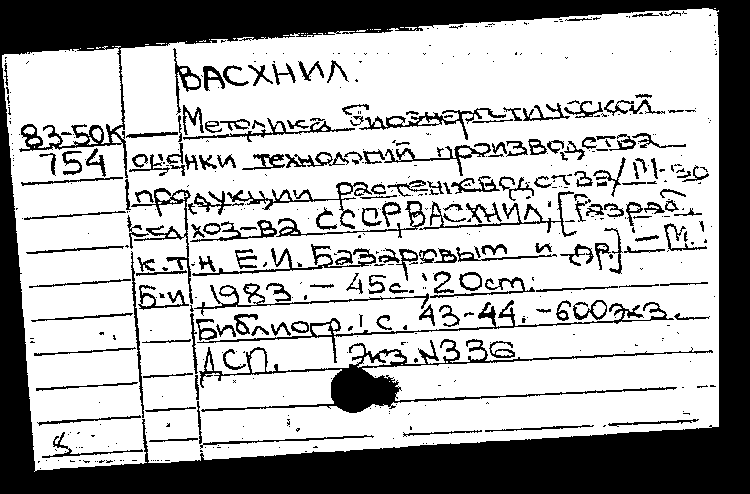 ВАСХНИЛ.
83-50К Методика биоэнергетической
754 оценки технологий производства
продукции растениеводства/М-во
сел. хоз-ва СССР, ВАСХНИЛ; [Разраб.
к.т.н. Е.И. Базаровым и др.]. - М.:
Б.и., 1983. - 45с.; 20см.
Библиогр.: с. 43-44. - 600экз.
ДСП. Экз. N336
8